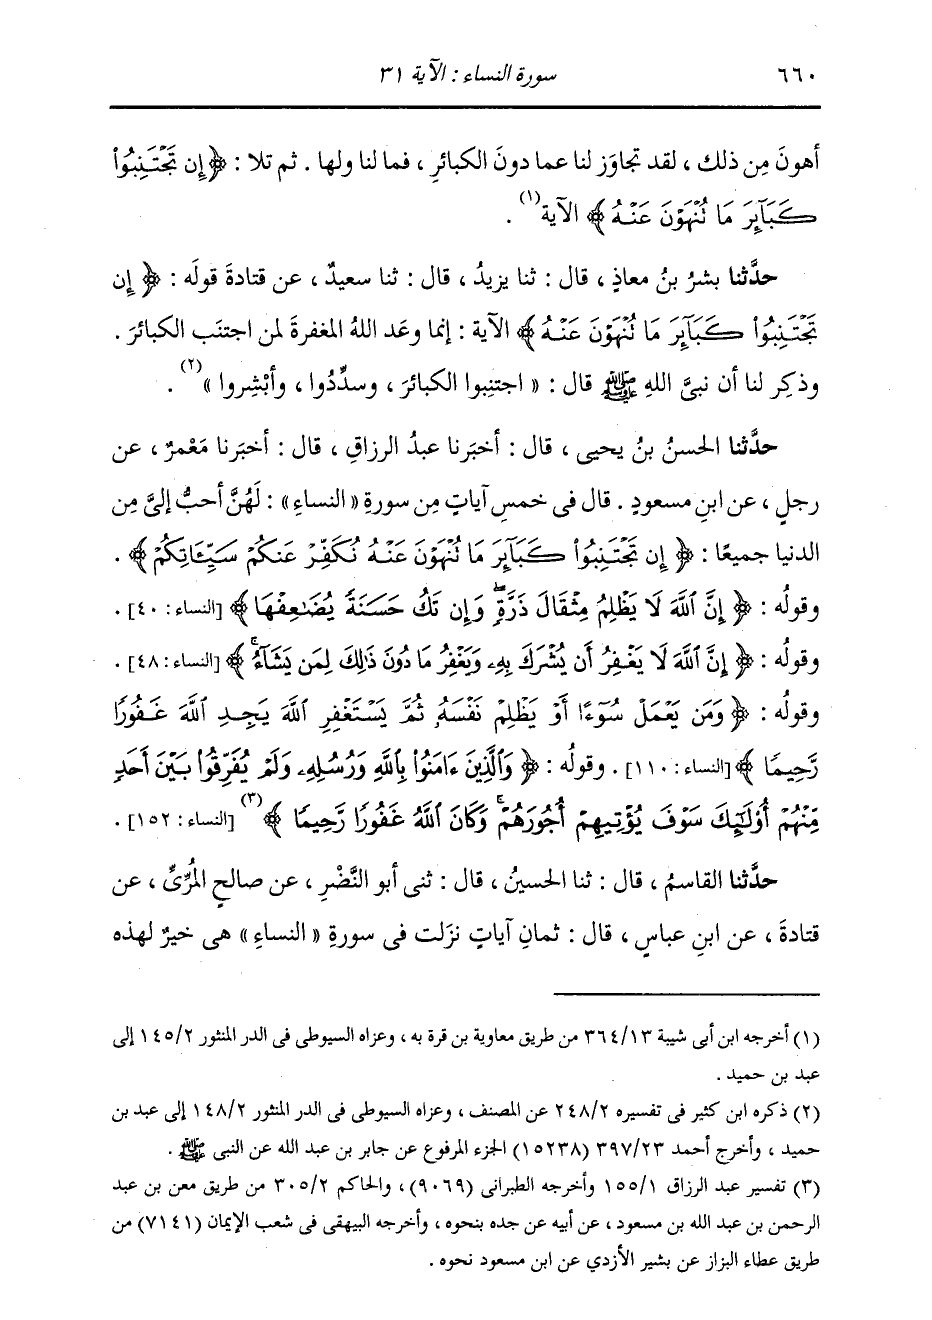 ٦٦٠
سورة النساء : الآية ٣١
أهونَ مِن ذلك ، لقد تجاوَز لنا عما دونَ الكبائرِ ، فما لنا ولها . ثم تلا : ﴿ إِن تَجْتَنِبُوا۟
كَبَآئِرَ مَا تُنْهَوْنَ عَنْهُ ﴾ الآية(١) .
حدَّثنا بشرُ بنُ معاذٍ ، قال : ثنا يزيدُ ، قال : ثنا سعيدٌ ، عن قتادةَ قولَه : ﴿ إِن
تَجْتَنِبُوا۟ كَبَآئِرَ مَا تُنْهَوْنَ عَنْهُ ﴾ الآية : إنما وعَد اللهُ المغفرةَ لمن اجتنَب الكبائرَ .
وذكِر لنا أن نبىَّ اللهِ ﷺ قال : « اجتنِبوا الكبائرَ ، وسدِّدُوا ، وأبْشِروا »(٢) .
حدَّثنا الحسنُ بنُ يحيى ، قال : أخبَرنا عبدُ الرزاقِ ، قال : أخبَرنا مَعْمرٌ ، عن
رجلٍ ، عن ابنِ مسعودٍ . قال فى خمسِ آياتٍ مِن سورةِ « النساءِ » : لَهُنَّ أحبُّ إلىَّ مِن
الدنيا جميعًا : ﴿ إِن تَجْتَنِبُوا۟ كَبَآئِرَ مَا تُنْهَوْنَ عَنْهُ نُكَفِّرْ عَنكُمْ سَيِّـَٔاتِكُمْ ﴾ .
وقولُه : ﴿ إِنَّ ٱللَّهَ لَا يَظْلِمُ مِثْقَالَ ذَرَّةٍۖ وَإِن تَكُ حَسَنَةً يُضَٰعِفْهَا ﴾ [النساء : ٤٠] .
وقولُه : ﴿ إِنَّ ٱللَّهَ لَا يَغْفِرُ أَن يُشْرَكَ بِهِۦ وَيَغْفِرُ مَا دُونَ ذَٰلِكَ لِمَن يَشَآءُۚ ﴾ [النساء : ٤٨] .
وقولُه : ﴿ وَمَن يَعْمَلْ سُوٓءًا أَوْ يَظْلِمْ نَفْسَهُۥ ثُمَّ يَسْتَغْفِرِ ٱللَّهَ يَجِدِ ٱللَّهَ غَفُورًا
رَّحِيمًا ﴾ [النساء : ١١٠] . وقولُه : ﴿ وَٱلَّذِينَ ءَامَنُوا۟ بِٱللَّهِ وَرُسُلِهِۦ وَلَمْ يُفَرِّقُوا۟ بَيْنَ أَحَدٍ
مِّنْهُمْ أُو۟لَٰٓئِكَ سَوْفَ يُؤْتِيهِمْ أُجُورَهُمْۚ وَكَانَ ٱللَّهُ غَفُورًا رَّحِيمًا ﴾(٣) [النساء : ١٥٢] .
حدَّثنا القاسمُ ، قال : ثنا الحسينُ ، قال : ثنى أبو النَّضْرِ ، عن صالحٍ المُرِّىِّ ، عن
قتادةَ ، عن ابنِ عباسٍ ، قال : ثمانِ آياتٍ نزَلت فى سورةِ « النساءِ » هى خيرٌ لهذه
(١) أخرجه ابن أبى شيبة ٣٦٤/١٣ من طريق معاوية بن قرة به ، وعزاه السيوطى فى الدر المنثور ١٤٥/٢ إلى
عبد بن حميد .
(٢) ذكره ابن كثير فى تفسيره ٢٤٨/٢ عن المصنف ، وعزاه السيوطى فى الدر المنثور ١٤٨/٢ إلى عبد بن
حميد ، وأخرج أحمد ٣٩٧/٢٣ (١٥٢٣٨) الجزء المرفوع عن جابر بن عبد الله عن النبى ﷺ .
(٣) تفسير عبد الرزاق ١٥٥/١ وأخرجه الطبرانى (٩٠٦٩) ، والحاكم ٣٠٥/٢ من طريق معن بن عبد
الرحمن بن عبد الله بن مسعود ، عن أبيه عن جده بنحوه ، وأخرجه البيهقى فى شعب الإيمان (٧١٤١) من
طريق عطاء البزاز عن بشير الأزدي عن ابن مسعود نحوه .